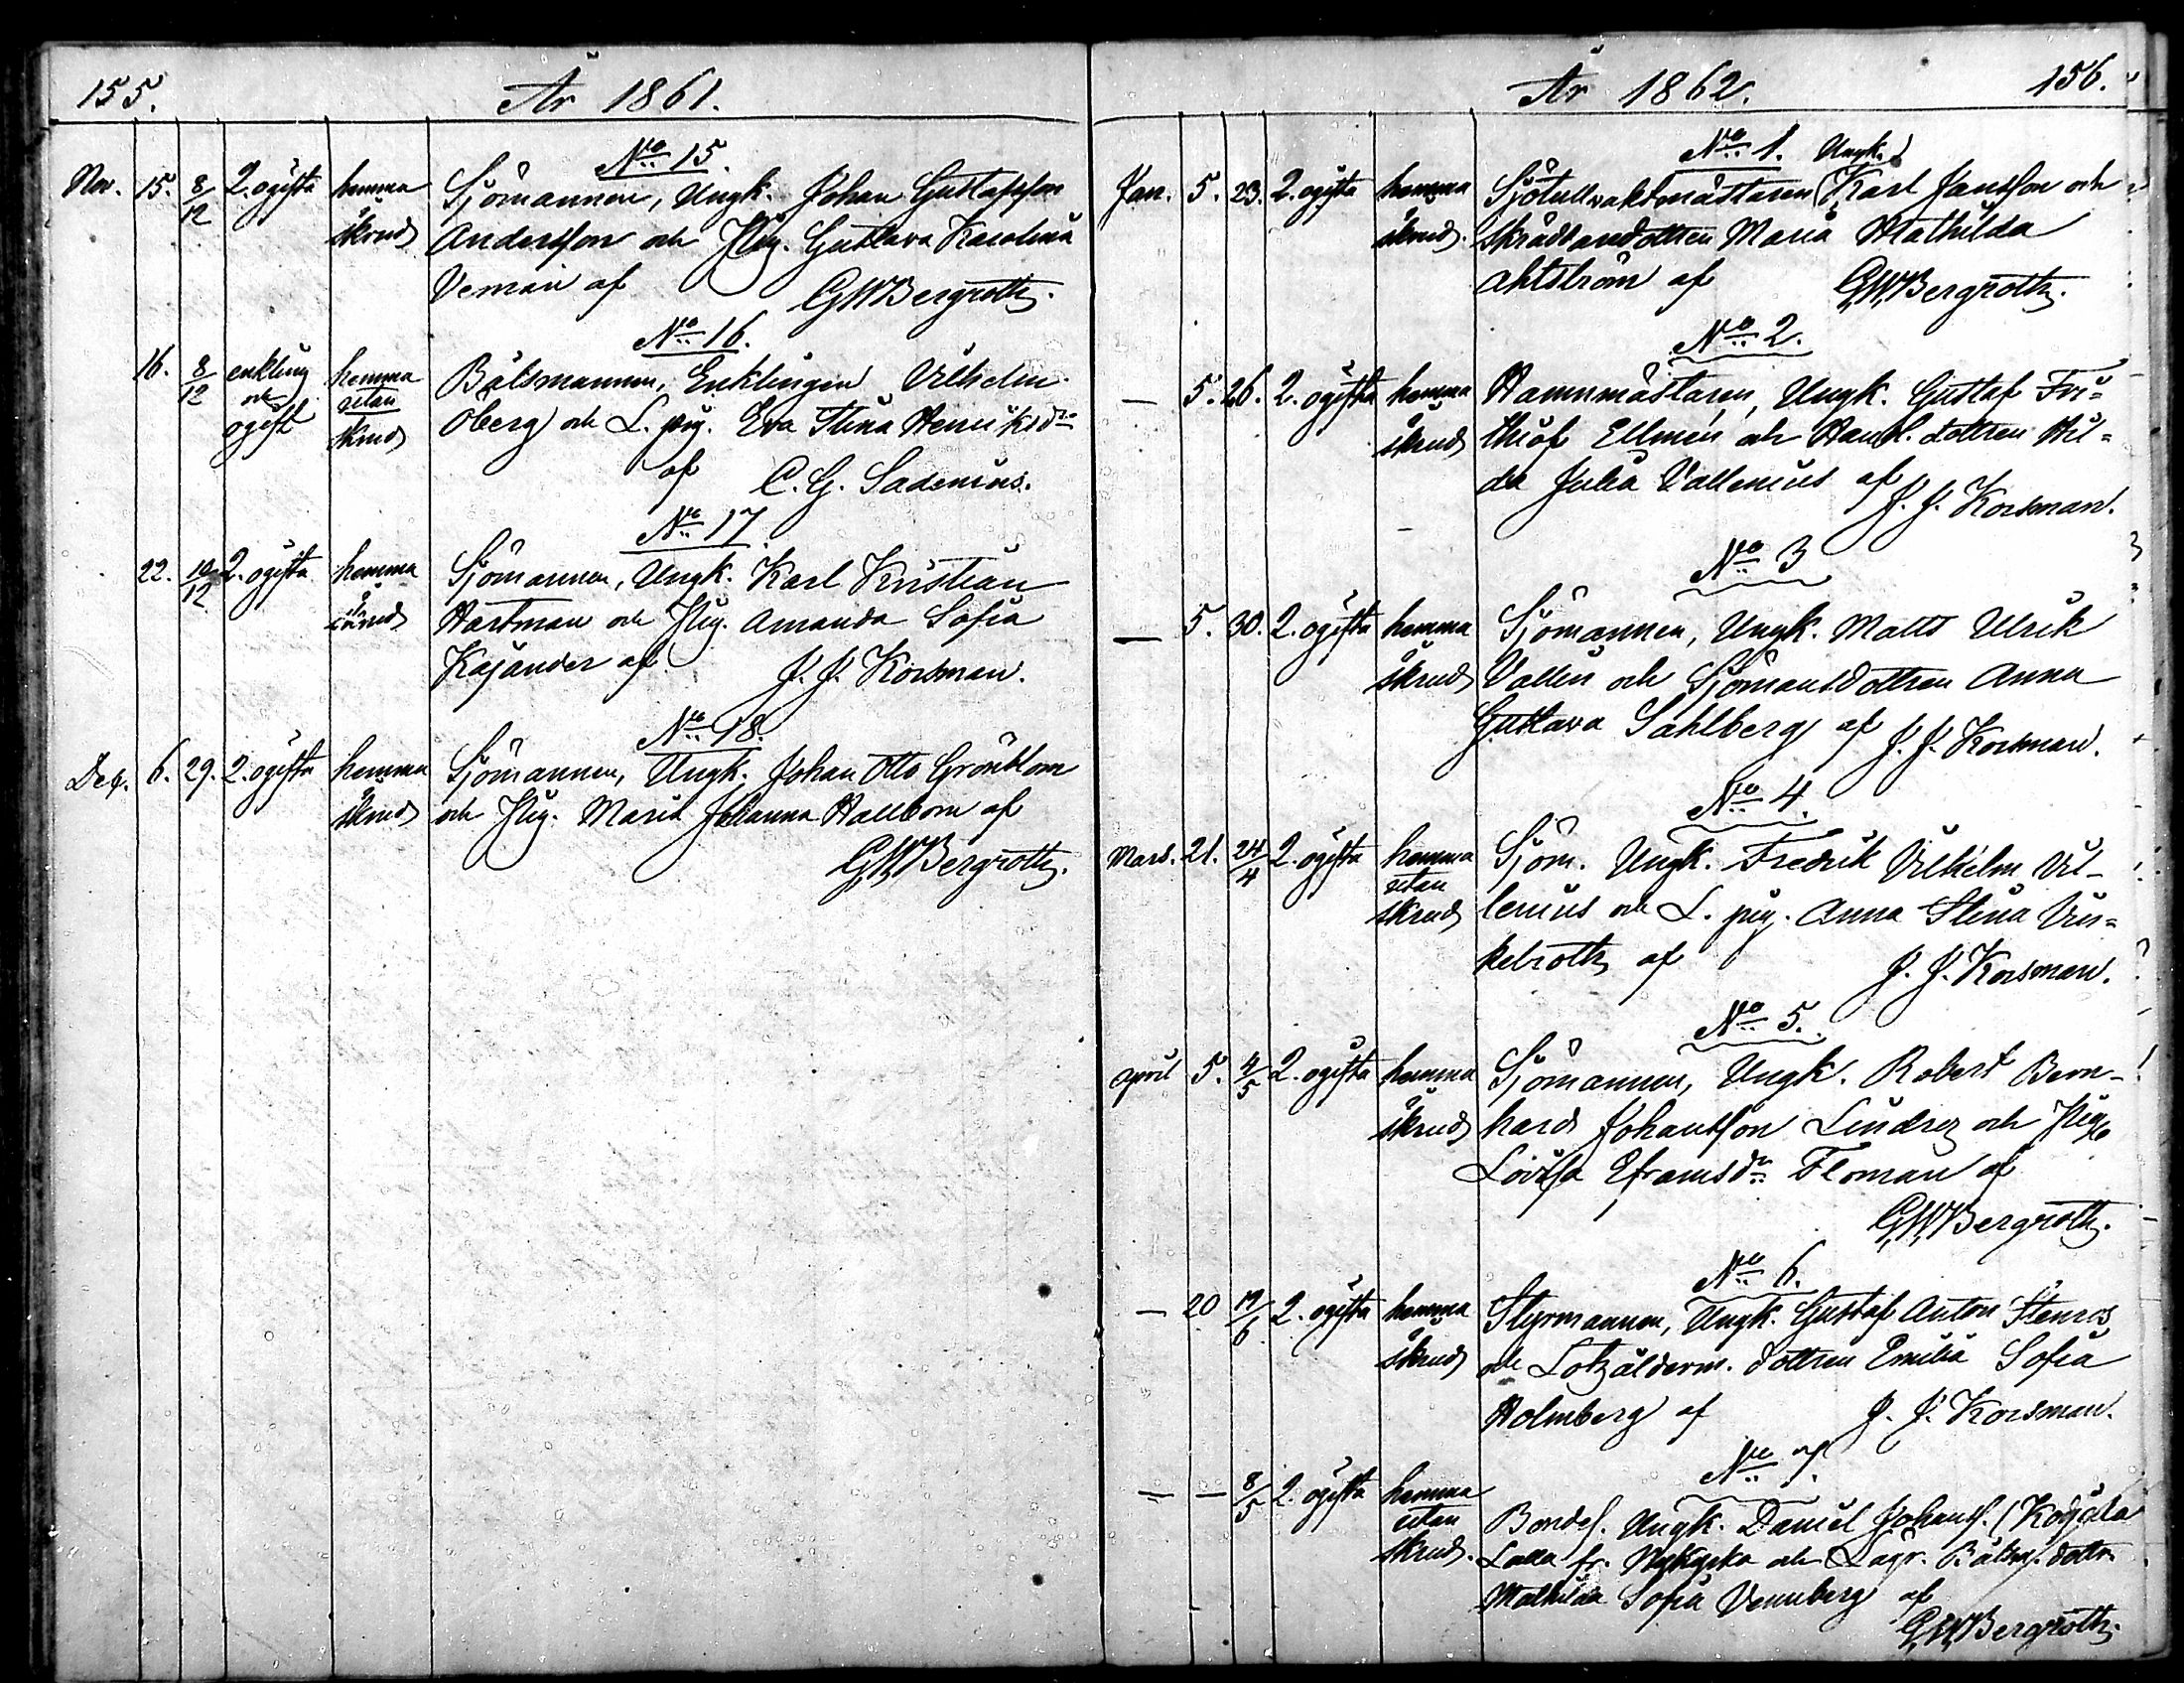 155.
År 1861.
No 15.
Nov. 15. 8/12 2. ogifta hemma Sjömannen, Ungk. Johan Gustafsson
skrud Andersson och Pig. Gustava Karolina
Veman af GWBergroth.
No 16.
16. 8/12 enkling hemma Båtsmannen, Enklingen Vilhelm
och utan Öberg och L. pig. Eva Stina Henriksdr
ogift skrud
af C. G. Sadenius.
No 17.
22. 10/12 2. ogifta hemma Sjömannen, Ungk. Karl Kristian
skrud Hartman och Pig. Amanda Sofia
Kajander af J. J. Korsman.
No 18.
Dec. 6. 29. 2. ogifta hemma Sjömannen, Ungk. Johan Otto Grönblom
skrud och Pig. Maria Johanna Hallbom af
GWBergroth.
År 1862.
156.
No 1. Ungk.
Jan. 5. 23. 2. ogifta hemma Sjötullvaktmästaren Karl Jansson och
skrud. Skräddaredottren Maria Mathilda
Ahlström af GWBergroth.
No 2.
— 5. 26. 2. ogifta hemma Hamnmästaren, Ungk. Gustaf Fri=
skrud thiof Ellmén och Handl. dottren Hil=
da Julia Vallenius af
J. J. Korsman.
No 3
— 5. 30. 2. ogifta hemma Sjömannen, Ungk. Matts Ulrik
skrud Vallin och Sjömansdottren Anna
Gustava Sahlberg af J. J. Korsman.
No 4.
Mars. 21. 24/4 2. ogifta hemma Sjöm. Ungk. Fredrik Vilhelm Vil-
utan
skrud lenius och L. pig. Anna Stina Vin=
kelroth af J. J. Korsman.
No 5.
April 5. 4/5 2. ogifta hemma Sjömannen, Ungk. Robert Bern-
skrud hard Johansson Lindroz och Pig.
Lovisa Eframsdr Floman af
GWBergroth.
No 6.
— 20 19/6 2. ogifta hemma Styrmannen, Ungk. Gustaf Anton Stenros
skrud och Lotzålderm. dottren Emilia Sofia
Holmberg af J. J. Korsman.
No 7.
— — 8/5 2. ogifta hemma
utan Bondes. Ungk. Daniel Johanss.
skrud. Lalla fr. Nykyrko och Båtsm. dottr
Mathilda Sofia Vennberg af
GWBergroth.